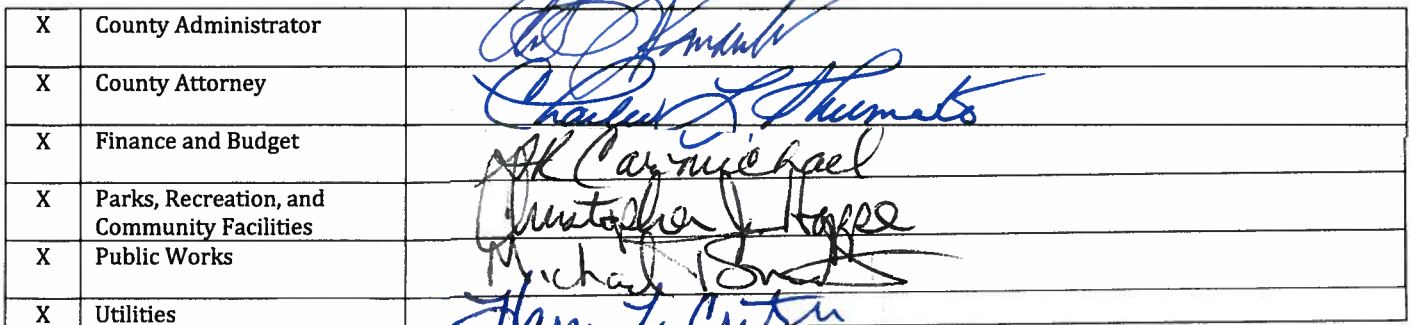 X County Administrator
X County Attorney Charles L Shumate
X Finance and Budget AR Carmichael
X Parks, Recreation, and
Community Facilities Christopher J. Hoppe
X Public Works Michael
X Utilities Harry L.